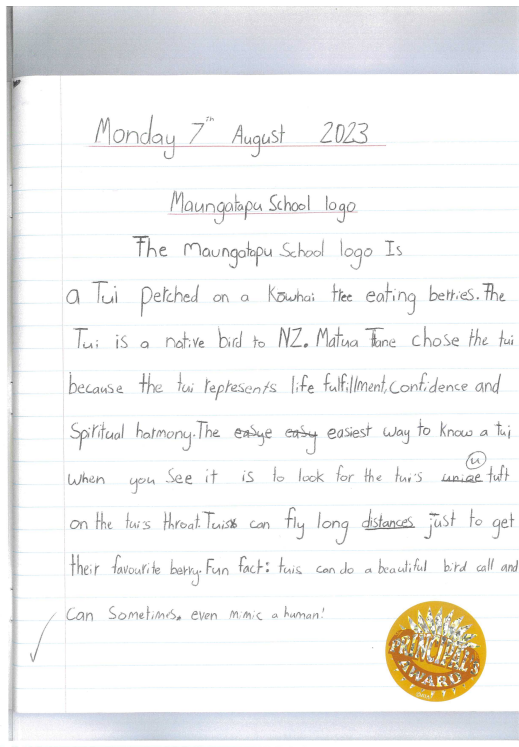 Monday 7th August 2023
Maungatapu School logo
The Maungatapu School logo Is
a Tui perched on a Kōwhai tree eating berries. The
Tui is a native bird to NZ. Matua Tane chose the tui
because the tui represents life fulfillment, Confidence and
Spiritual harmony. The easye easy easiest way to know a tui
u
when you See it is to look for the tui's uniqe tuft
on the tuis throat. Tuis can fly long distances just to get
their favourite berry. Fun fact: tuis can do a beautiful bird call and
Can Sometimes. even mimic a human!
PRINCIPAL'S
AWARD